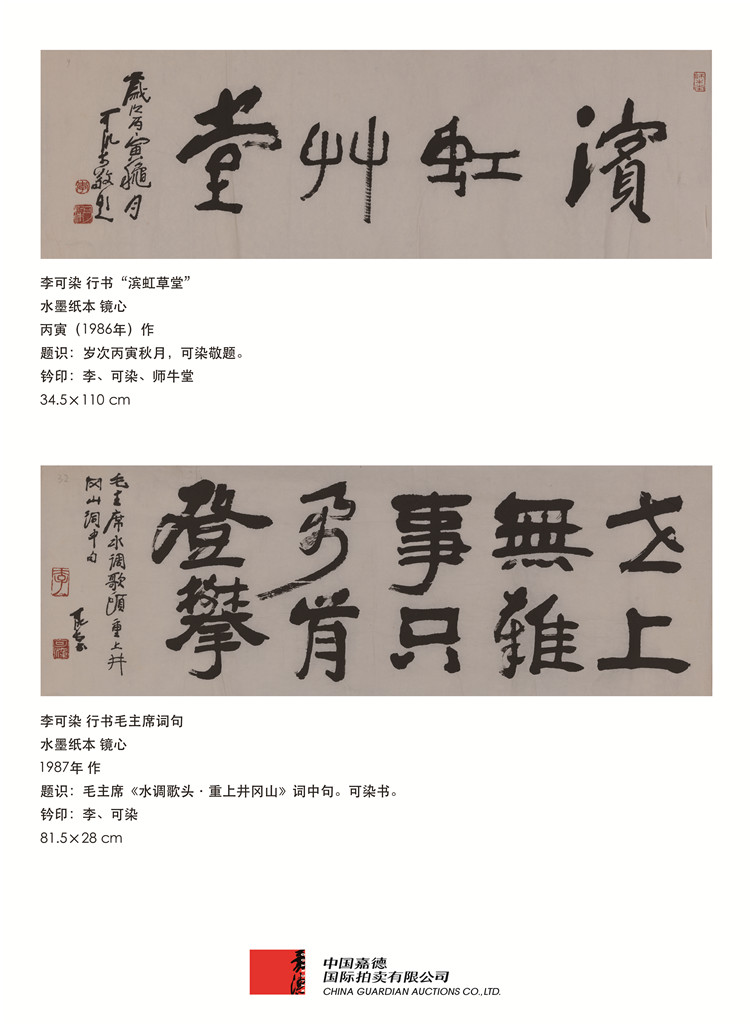 濱虹艸堂
歲次丙寅穐月
可染敬題
李可染 行书“滨虹草堂”
水墨纸本 镜心
丙寅（1986年）作
题识：岁次丙寅秋月，可染敬题。
钤印：李、可染、师牛堂
34.5×110 cm
世上
無難
事只
要肯
登攀
毛主席水调歌頭重上井
冈山词中句
可染書
李
李可染 行书毛主席词句
水墨纸本 镜心
1987年 作
题识：毛主席《水调歌头·重上井冈山》词中句。可染书。
钤印：李、可染
81.5×28 cm
嘉德
中国嘉德
国际拍卖有限公司
CHINA GUARDIAN AUCTIONS CO.,LTD.